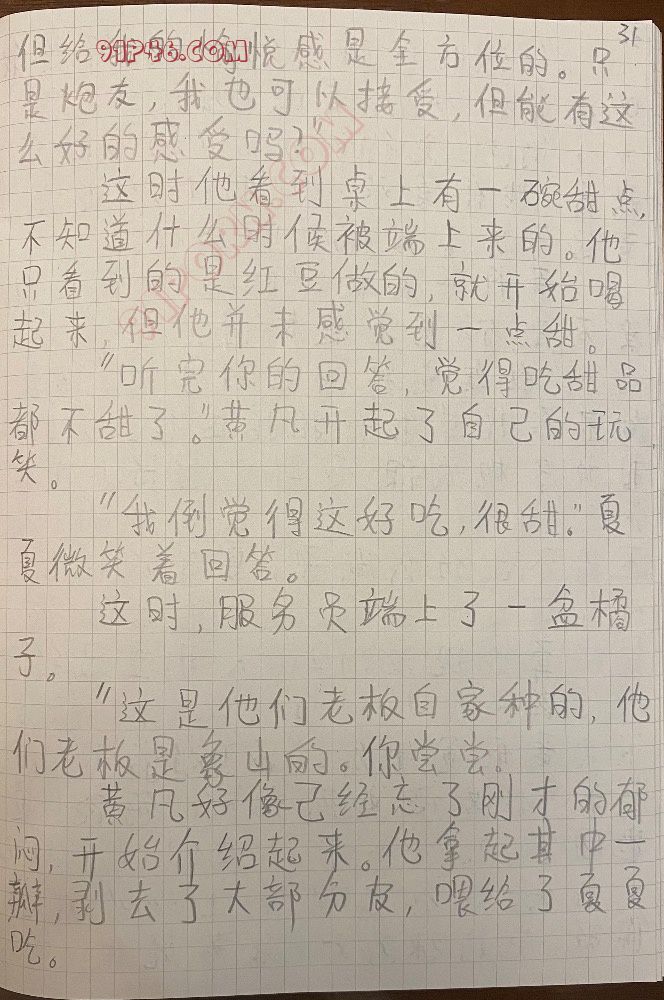 31
但给 悦感是全方位的。只
91P48.COM
是炮友，我也可以接受，但能有这
么好的感受吗？”
这时他看到桌上有一碗甜点，
不知道什么时候被端上来的。他
只看到的是红豆做的，就开始喝
起来，但他并未感觉到一点甜。
“听完你的回答，觉得吃甜品
都不甜了。”黄凡开起了自己的玩
笑。
“我倒觉得这好吃，很甜。”夏
夏微笑着回答。
这时，服务员端上了一盆橘
子。
“这是他们老板自家种的，他
们老板是象山的。你尝尝。
黄凡好像已经忘了刚才的郁
闷，开始介绍起来。他拿起其中一
瓣，剥去了大部分皮，喂给了夏夏
吃。